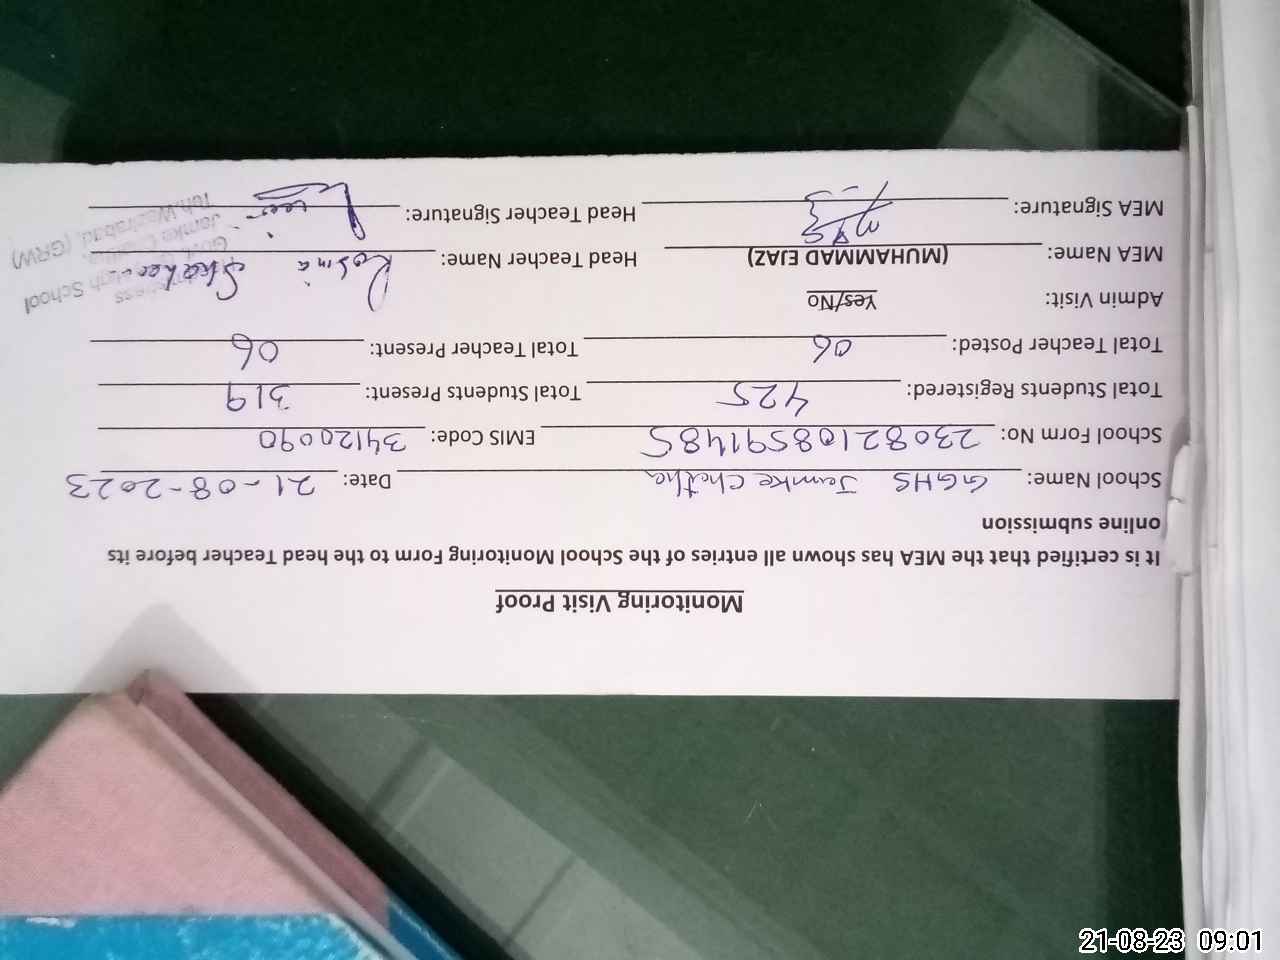 Monitoring Visit Proof
It is certified that the MEA has shown all entries of the School Monitoring Form to the head Teacher before its
online submission
School Name: GGHS Jamke Chatha Date: 21-08-2023
School Form No: 23082108591485 EMIS Code: 34120090
Total Students Registered: 425 Total Students Present: 319
Total Teacher Posted: 06 Total Teacher Present: 06
Admin Visit: Yes/No
MEA Name: (MUHAMMAD EJAZ) Head Teacher Name: Robina Shaheen
MEA Signature: Head Teacher Signature:
High School
Jamke Chatha
Teh. Wazirabad, (GRW)
21-08-23 09:01